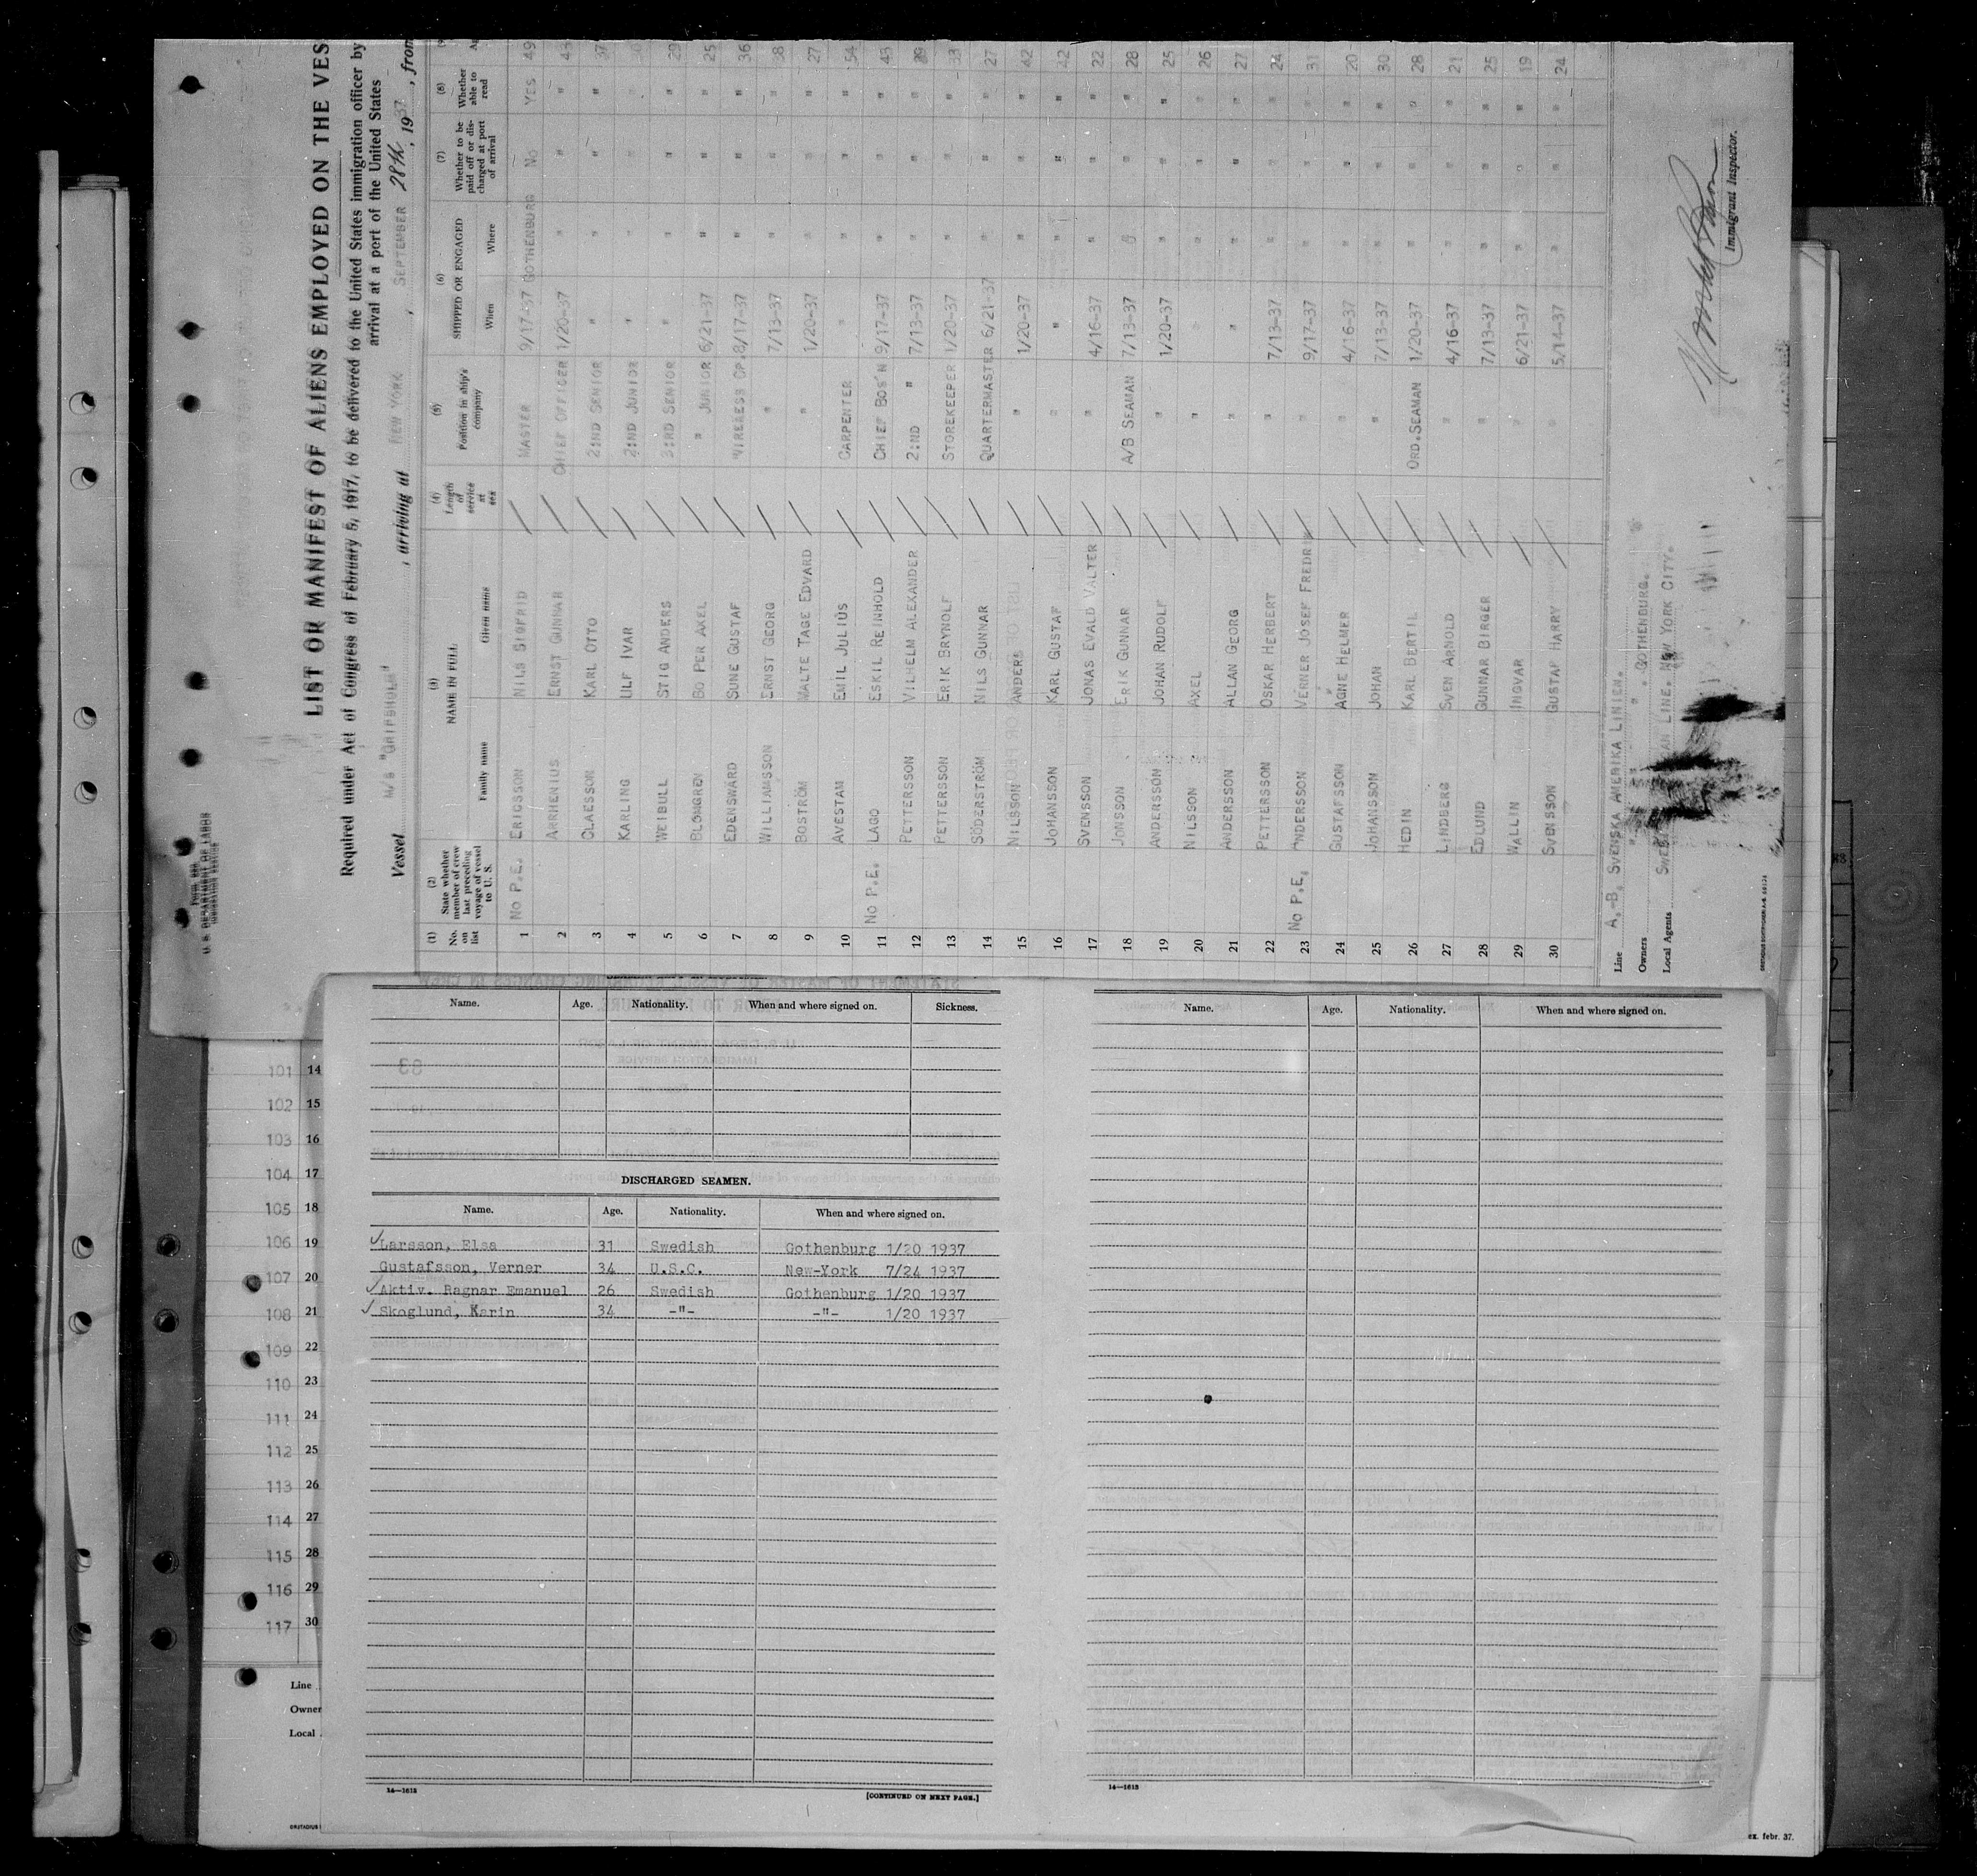 Form 680
U. S. DEPARTMENT OF LABOR
IMMIGRATION SERVICE
LIST OR MANIFEST OF ALIENS EMPLOYED ON THE VES
Required under Act of Congress of February 5, 1917, to be delivered to the United States immigration officer by
arrival at a port of the United States
Vessel M/S "GRIPSHOLM", arriving at NEW YORK, SEPTEMBER 28th, 1937, from
(1) No. on list (2) State whether member of crew last preceding voyage of vessel to U. S. (3) NAME IN FULL Family name Given name (4) Length of service at sea (5) Position in ship's company (6) SHIPPED OR ENGAGED When Where (7) Whether to be paid off or discharged at port of arrival (8) Whether able to read
1 NO P.E. ERICSSON NILS SIGFRID MASTER 9/17-37 GOTHENBURG NO YES 49
2 ARRHENIUS ERNST GUNNAR CHIEF OFFICER 1/20-37 " " " 43
3 CLAESSON KARL OTTO 2:ND SENIOR " " " " 37
4 KARLING ULF IVAR 2:ND JUNIOR " " " " 30
5 WEIBULL STIG ANDERS 3:RD SENIOR " " " " 29
6 BLOMGREN BO PER AXEL " JUNIOR 6/21-37 " " " 25
7 EDENSWÄRD SUNE GUSTAF WIRELESS OP. 8/17-37 " " " 36
8 WILLIAMSSON ERNST GEORG " 7/13-37 " " " 38
9 BOSTRÖM MALTE TAGE EDVARD " 1/20-37 " " " 27
10 AVESTAM EMIL JULIUS CARPENTER " " " " 54
11 NO P.E. LAGO ESKIL REINHOLD CHIEF BOS'N 9/17-37 " " " 43
12 PETTERSSON VILHELM ALEXANDER 2:ND " 7/13-37 " " " 39
13 PETTERSSON ERIK BRYNOLF STOREKEEPER 1/20-37 " " " 33
14 SÖDERSTRÖM NILS GUNNAR QUARTERMASTER 6/21-37 " " " 27
15 NILSSON ANDERS " 1/20-37 " " " 42
16 JOHANSSON KARL GUSTAF " " " " " 42
17 SVENSSON JONAS EVALD VALTER " 4/16-37 " " " 22
18 JONSSON ERIK GUNNAR A/B SEAMAN 7/13-37 " " " 28
19 ANDERSSON JOHAN RUDOLF " 1/20-37 " " " 25
20 NILSSON AXEL " " " " " 26
21 ANDERSSON ALLAN GEORG " " " " " 27
22 PETTERSSON OSKAR HERBERT " 7/13-37 " " " 24
23 NO P.E. ANDERSSON VERNER JOSEF FREDRIK " 9/17-37 " " " 31
24 GUSTAFSSON AGNE HELMER " 4/16-37 " " " 20
25 JOHANSSON JOHAN " 7/13-37 " " " 30
26 HEDIN KARL BERTIL ORD.SEAMAN 1/20-37 " " " 28
27 LINDBERG SVEN ARNOLD " 4/16-37 " " " 21
28 EDLUND GUNNAR BIRGER " 7/13-37 " " " 25
29 WALLIN INGVAR " 6/21-37 " " " 19
30 SVENSSON GUSTAF HARRY " 5/14-37 " " " 24
Line A.-B. SVENSKA AMERIKA LINIEN.
Owners " " " . GOTHENBURG.
Local Agents LINE. NEW YORK CITY.
Immigrant Inspector.
Name. Age. Nationality. When and where signed on. Sickness.
DISCHARGED SEAMEN.
Name. Age. Nationality. When and where signed on.
Larsson, Elsa 31 Swedish Gothenburg 1/20 1937
Gustafsson, Verner 34 U.S.C. New-York 7/24 1937
Aktiv. Ragnar Emanuel 26 Swedish Gothenburg 1/20 1937
Skoglund, Karin 34 -"- -"- 1/20 1937
14—1613
[CONTINUED ON NEXT PAGE.]
Name. Age. Nationality. When and where signed on.
14—1613
101 14
102 15
103 16
104 17
105 18
106 19
107 20
108 21
109 22
110 23
111 24
112 25
113 26
114 27
115 28
116 29
117 30
Line
Owner
Local
ex. febr. 37.